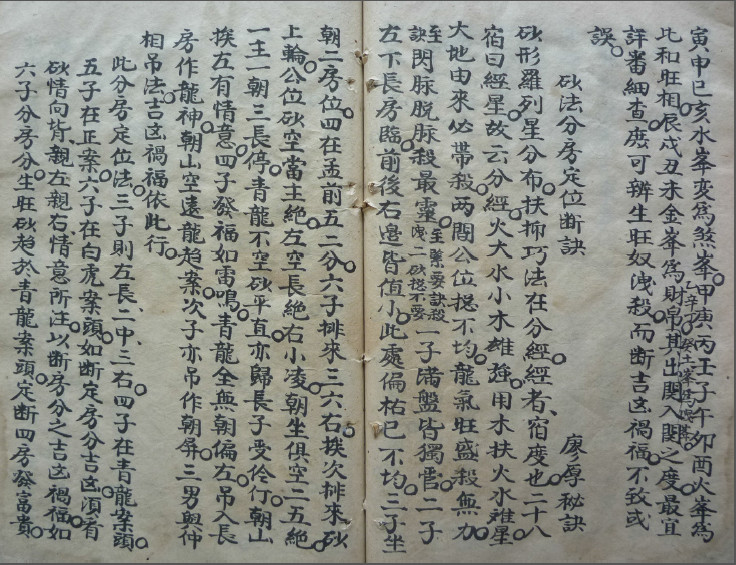 寅申巳亥水峯变為煞峯。甲庚丙壬子午卯酉火峯為
比和旺相。辰戌丑未金峯為財帛。其出関入関之度。最宜
詳審細查。庶可辨生旺奴洩殺。而断吉凶禍福。不致或
誤。
砂法分房定位断訣
廖厚秘訣
砂形羅列星分布。扶揷巧法在分經。經者、宿度也。二十八
宿曰經星。故云分經。火大水小木雄強。用木扶火水难星
大地由来必帶殺。两間公位捴不均。龍氣旺盛殺無力。
訣閃脉脫脉殺最靈。一子諸盤皆獨管。二子
左下長房臨前後右邉皆值小。此處偏枯已不均。三子坐
朝二房位。四在孟前五二分。六子排来三六右。挨次排来。砂
上輪。公位砂空當主絶。左空長絶右小凌。朝坐俱空二五絶
一主一朝三長停。青龍不空砂平直。亦歸長子受伶仃。朝山
挨左有情意。四子發福如雷鳴。青龍全無朝偏左。吊入長
房作龍神。朝山空遠龍趋案。次子亦吊作朝屏。三男與仲
相吊法。吉凶禍福依此行。
此分房定位法。三子則左長、二中、三右。四子在青龍案頭。
五子在正案。六子在白虎案頭。如断定房分吉凶。須看
砂情向背。親左親右。情意所注。以断房分之吉凶禍福。如
六子分房分。生旺砂趋於青龍案頭。定断四房發富貴。